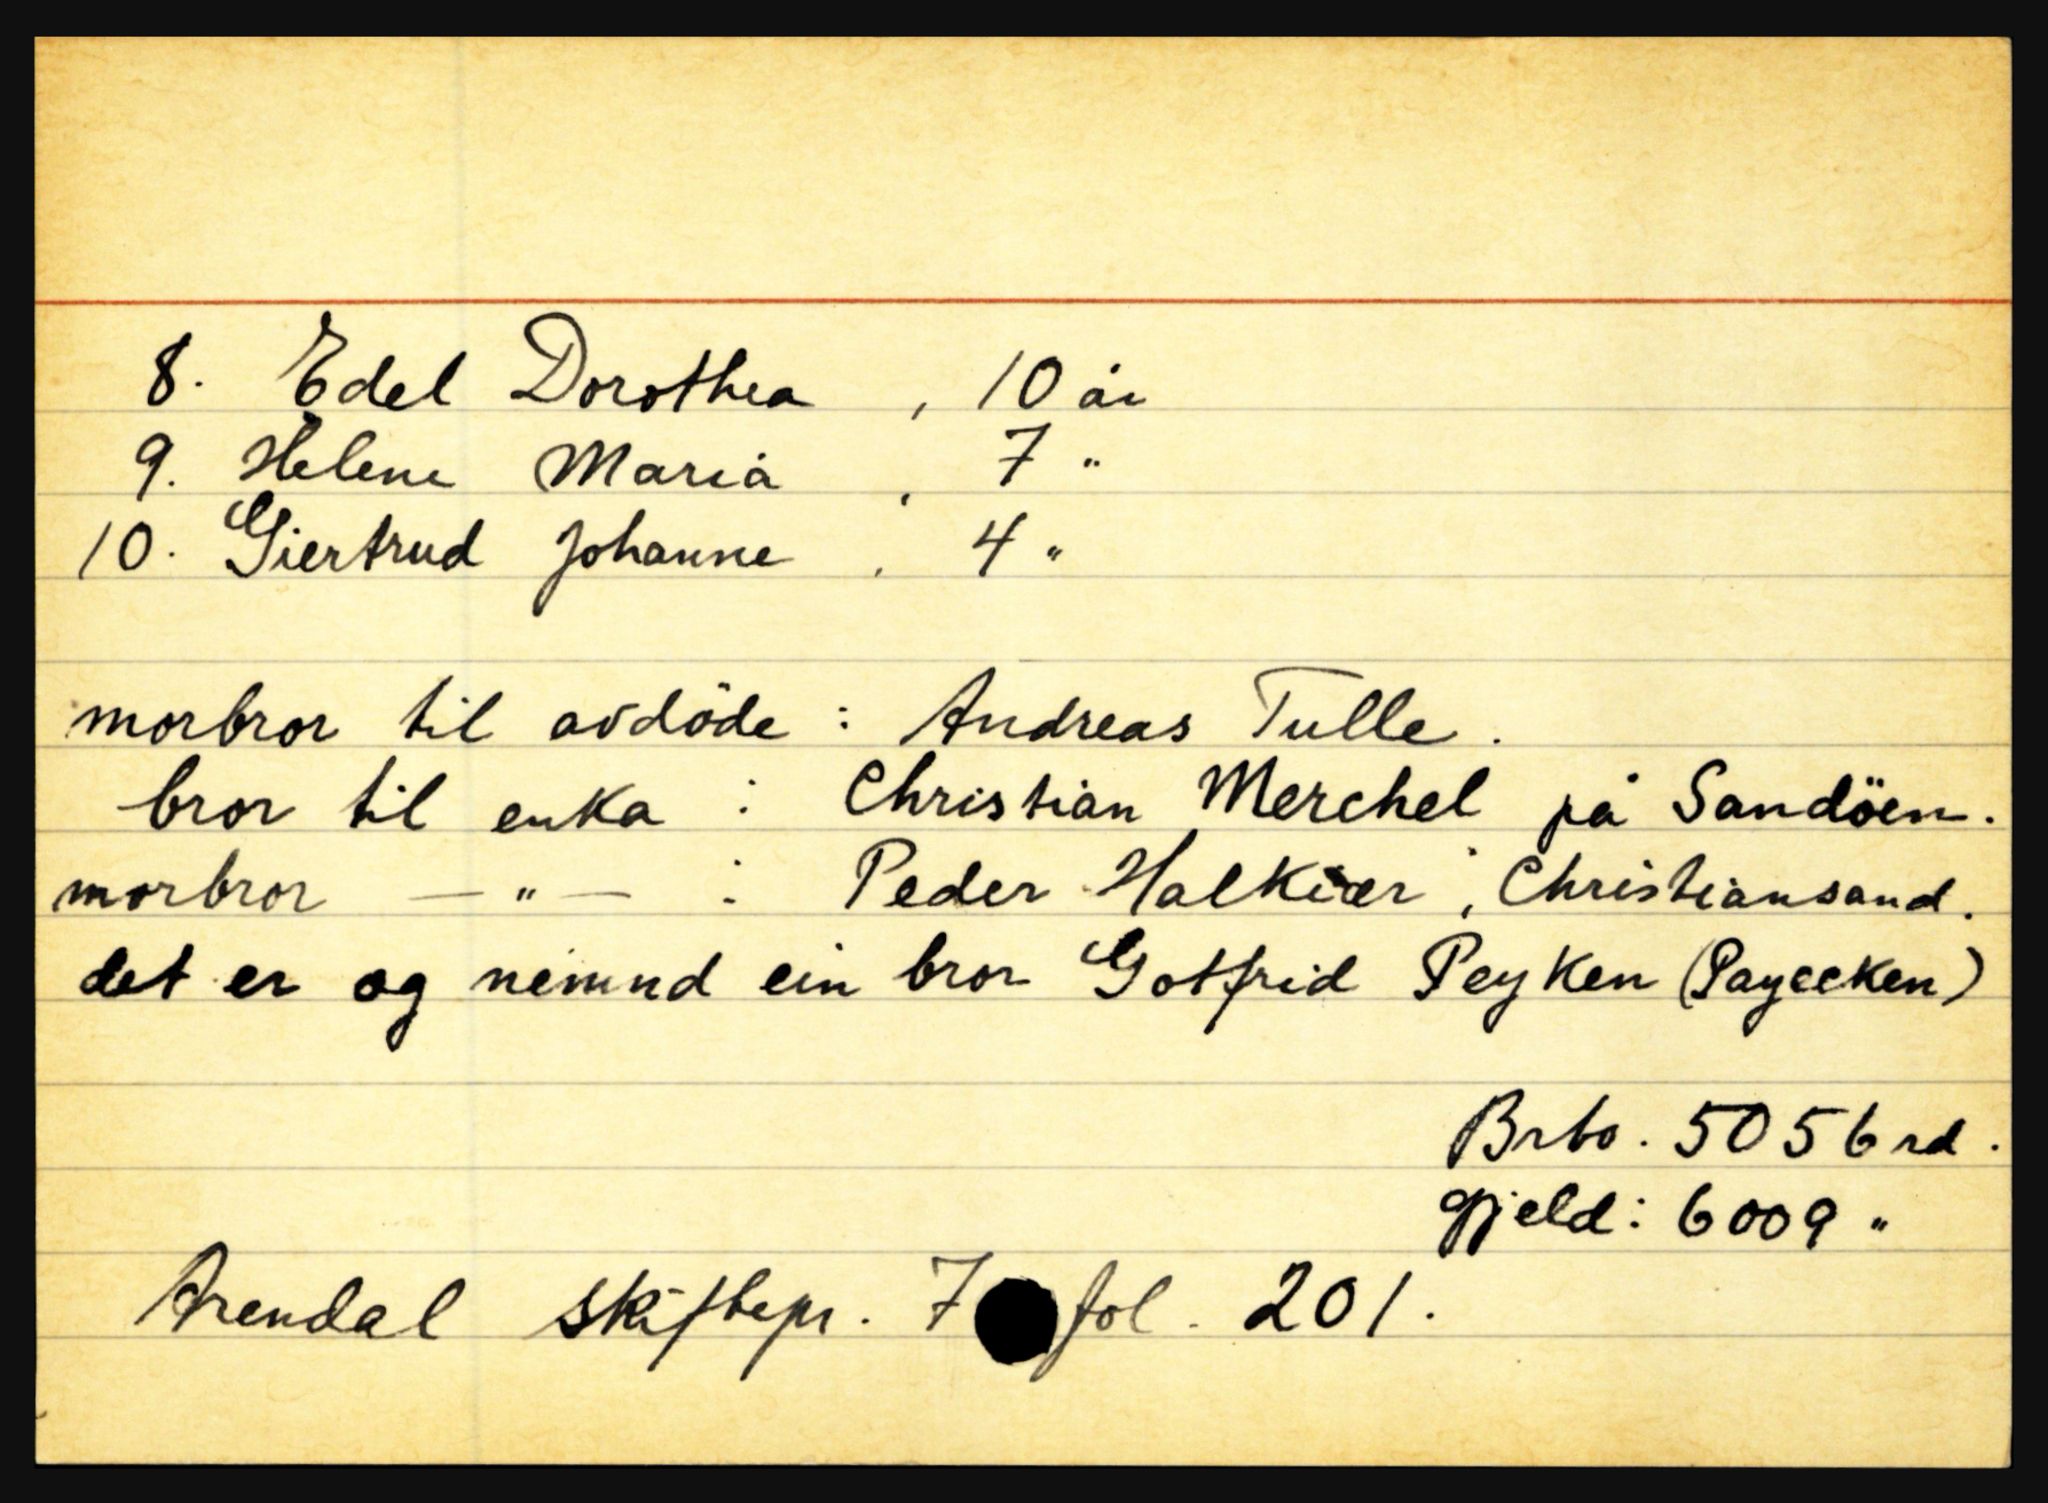 8. Edel Dorothea , 10 år
9. Helene Maria , 7 "
10. Giertrud Johanne , 4 "
morbror til avdöde : Andreas Tulle .
bror til enka : Christian Merchel på Sandöen .
morbror — " — : Peder Halkiær , Christiansand .
det er og nemnd ein bror Gotfrid Peyken (Payecken)
Brto . 5056 rd .
Gjeld : 6009 "
Arendal skiftepr . 7 fol . 201 .